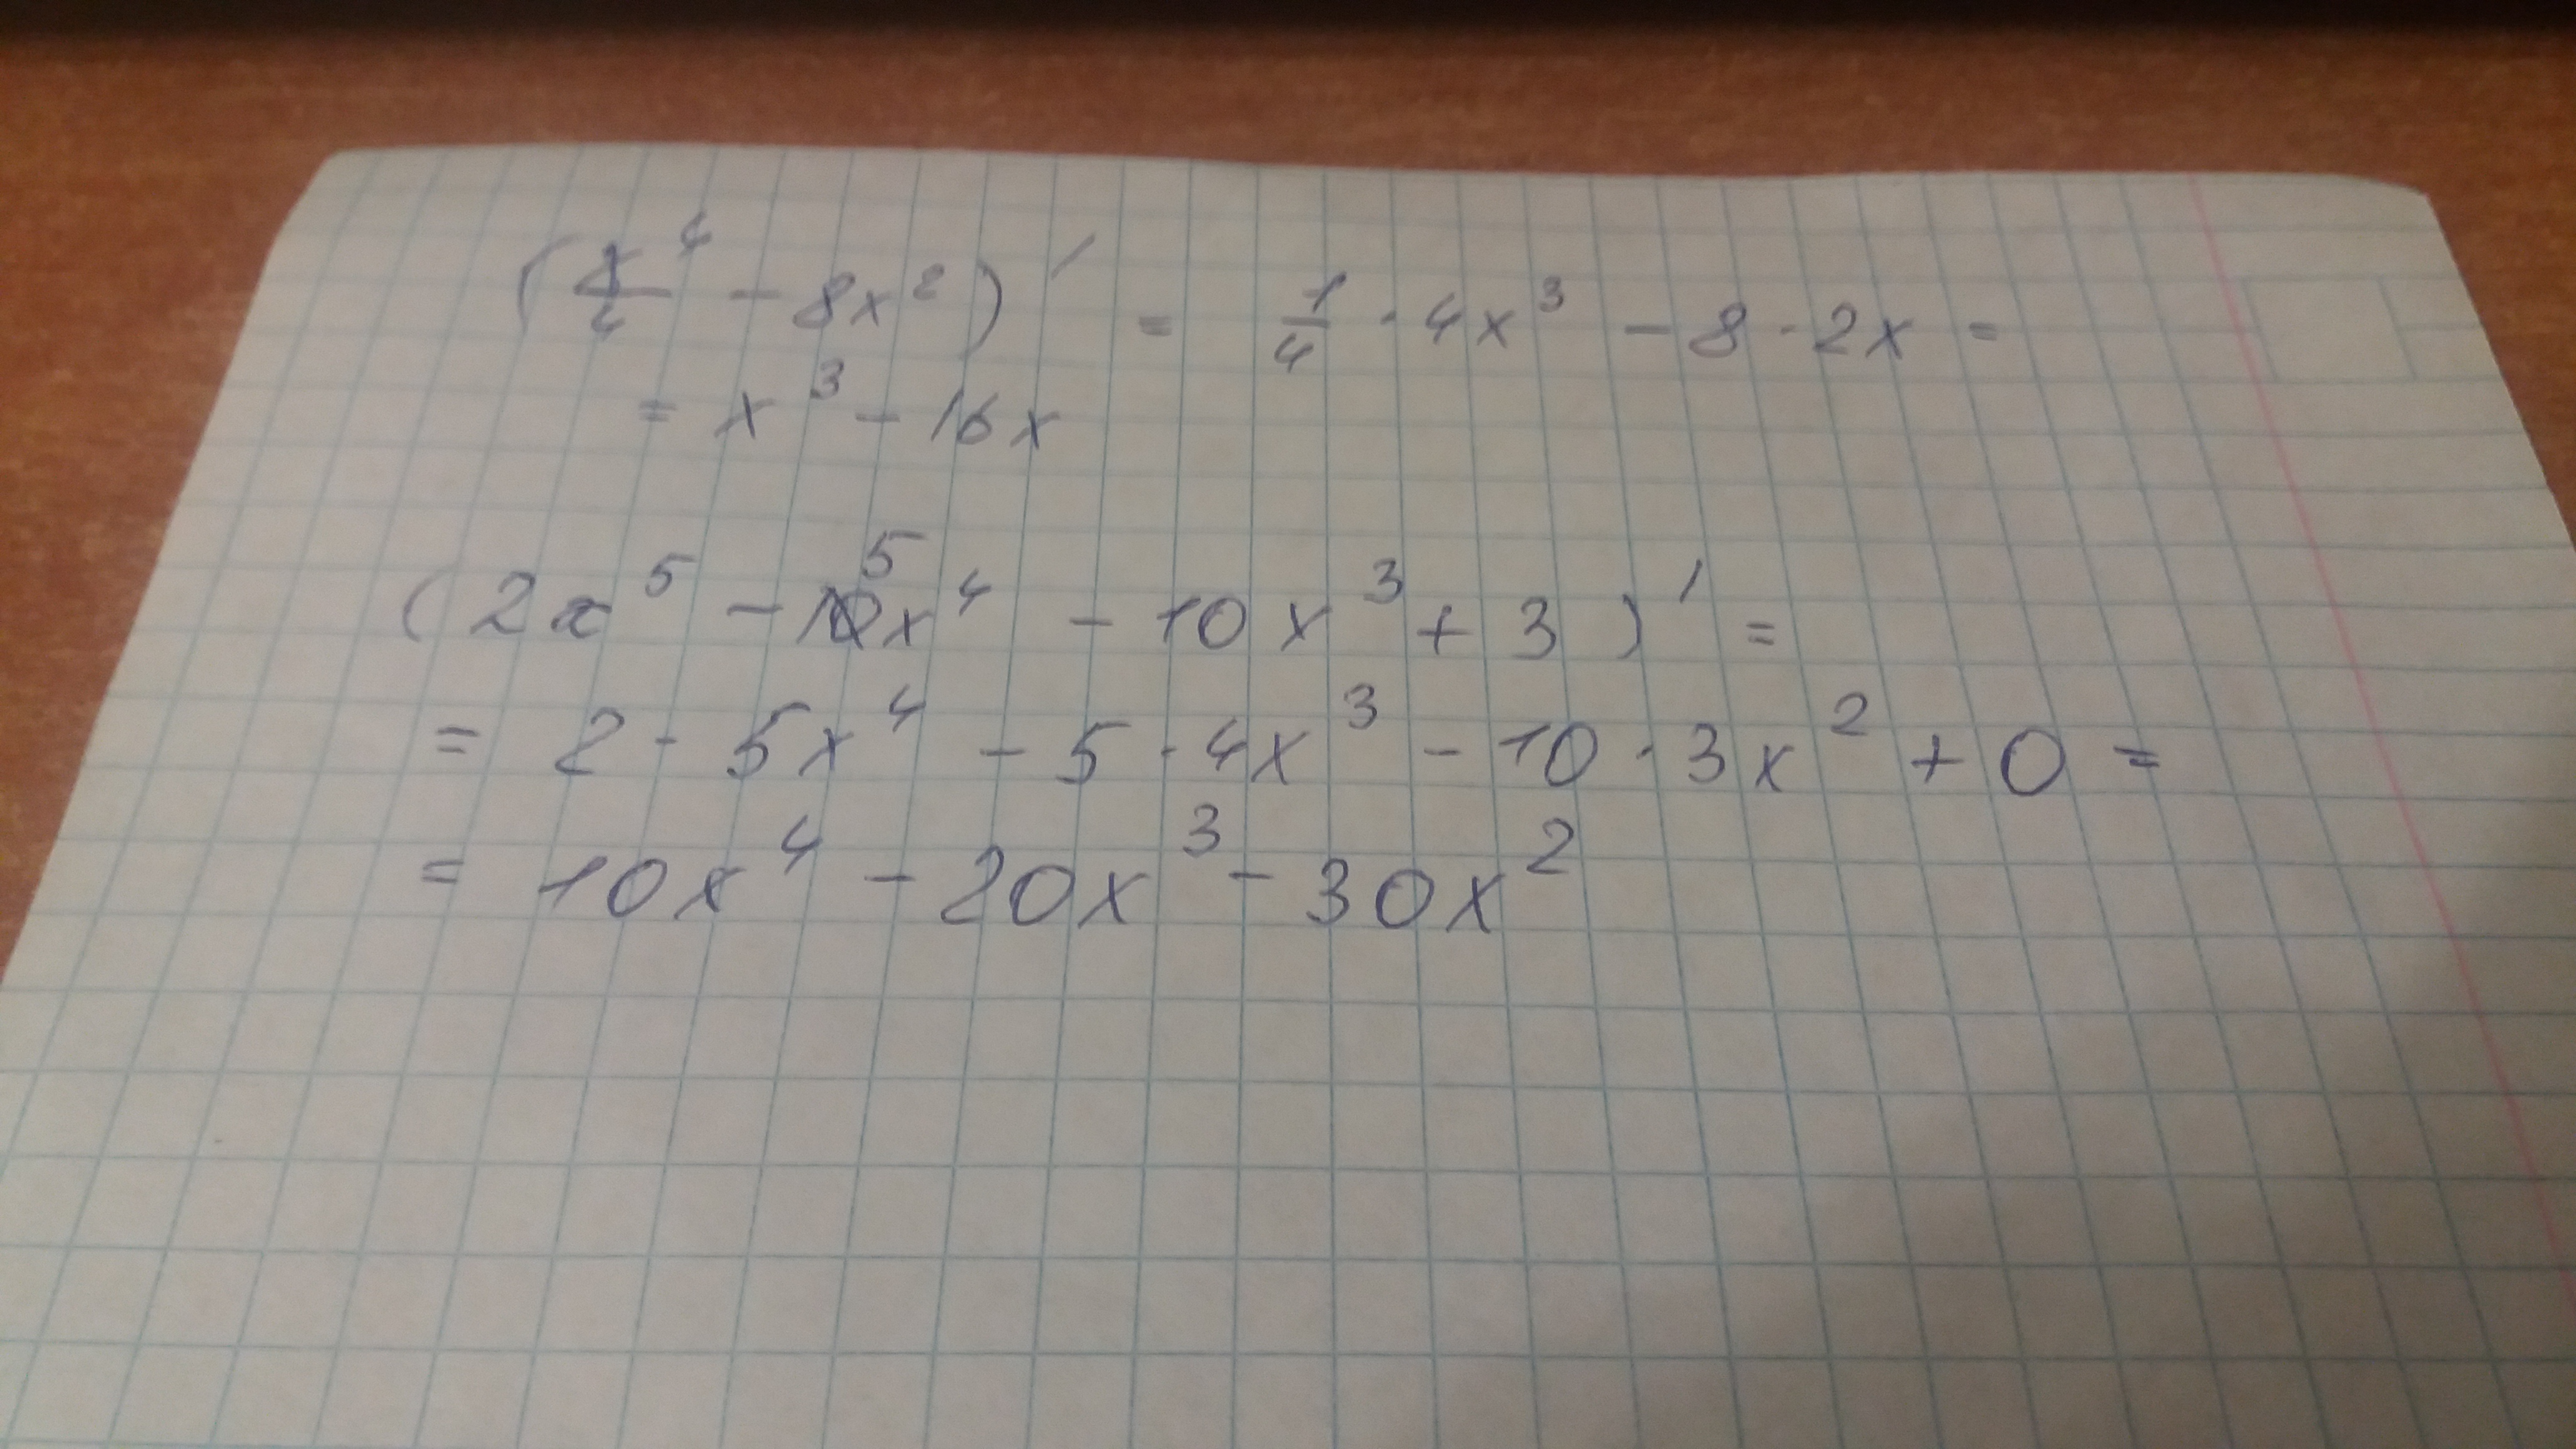 (x⁴/4 - 8x²)' = 1/4 · 4x³ - 8 · 2x =
= x³ - 16x
(2x⁵ - 5x⁴ - 10x³ + 3)' =
= 2 · 5x⁴ - 5 · 4x³ - 10 · 3x² + 0 =
= 10x⁴ - 20x³ - 30x²